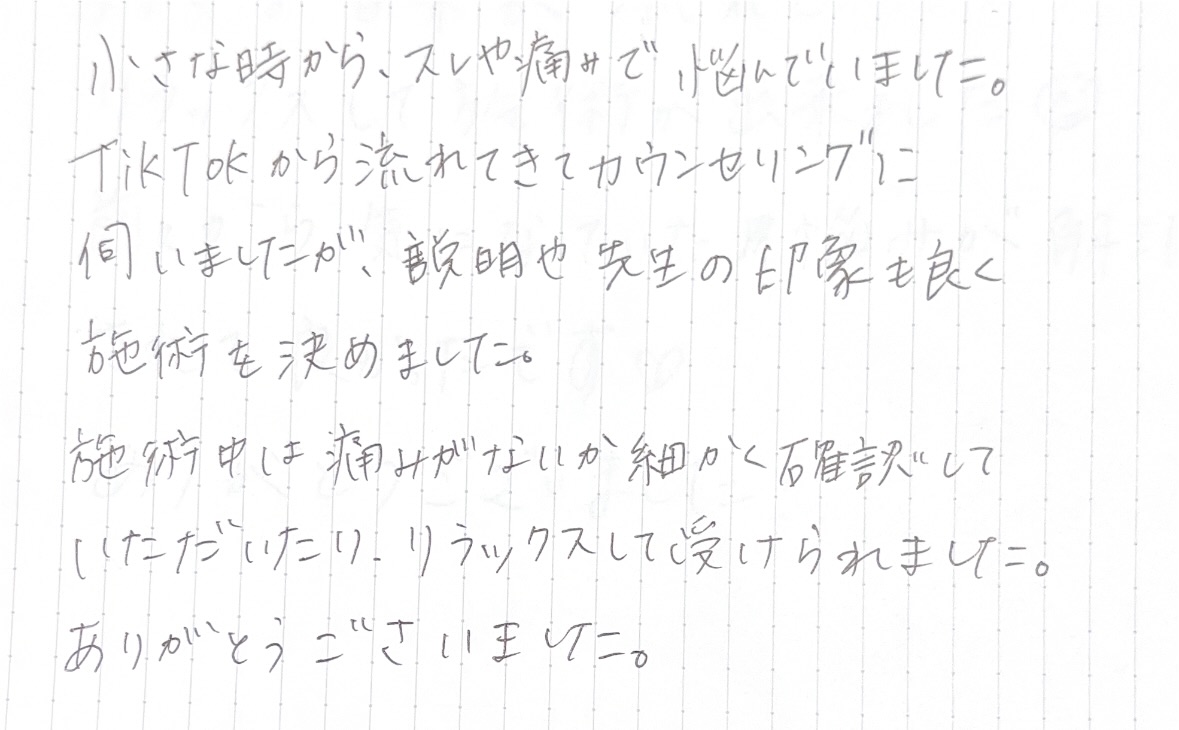 小さな時から、スレや痛みで悩んでいました。
TikTokから流れてきてカウンセリングに
伺いましたが、説明や先生の印象も良く
施術を決めました。
施術中は痛みがないか細かく確認して
いただいたり、リラックスして受けられました。
ありがとうございました。